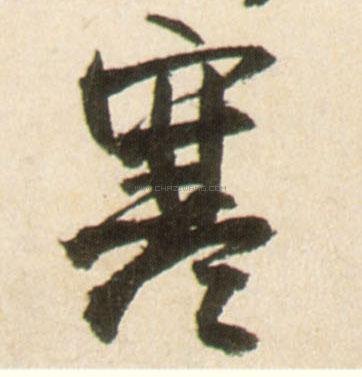 寒
WWW.CHAZIWANG.COM